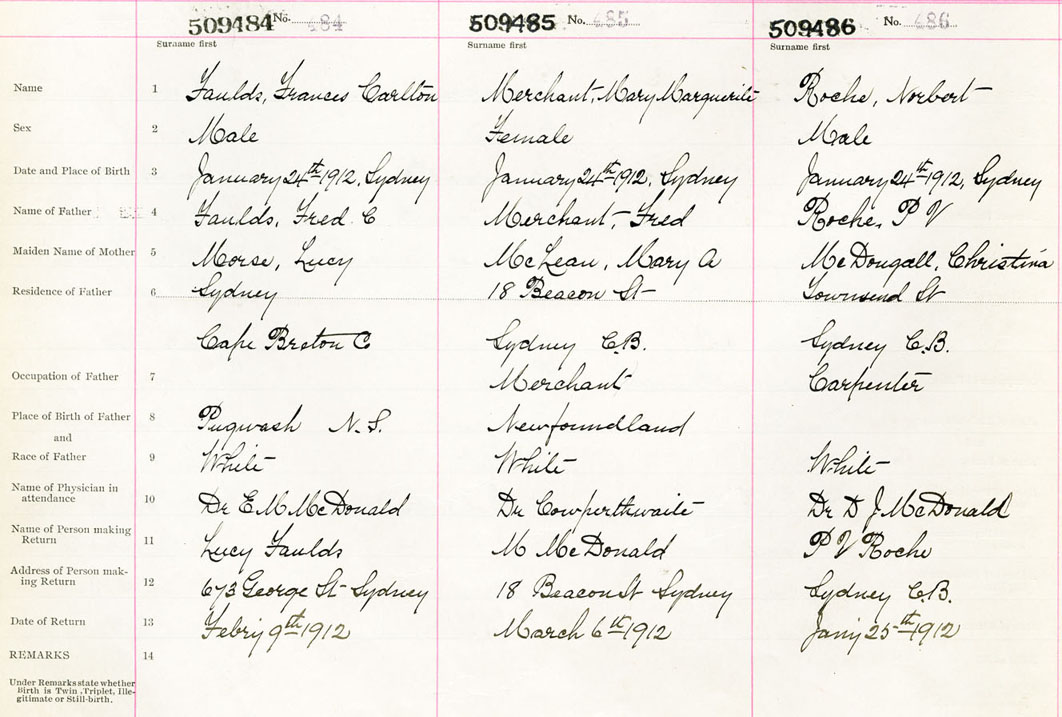 509484 No. 484 509485 No. 485 509486 No. 486
Surname first Surname first Surname first
Name 1 Faulds, Frances Carlton Merchant, Mary Marguerite Roche, Norbert
Sex 2 Male Female Male
Date and Place of Birth 3 January 24th 1912, Sydney January 24th 1912, Sydney January 24th 1912, Sydney
Name of Father 4 Faulds, Fred C Merchant, Fred Roche, P V
Maiden Name of Mother 5 Morse, Lucy McLean, Mary A McDougall, Christina
Residence of Father 6 Sydney 18 Beacon St Townsend St
Cape Breton C Sydney C.B. Sydney C.B.
Occupation of Father 7 Merchant Carpenter
Place of Birth of Father 8 Pugwash N.S. Newfoundland
and
Race of Father 9 White White White
Name of Physician in
attendance 10 Dr E M McDonald Dr Cowperthwaite Dr D J McDonald
Name of Person making
Return 11 Lucy Faulds M McDonald P V Roche
Address of Person mak-
ing Return 12 673 George St Sydney 18 Beacon St Sydney Sydney C.B.
Date of Return 13 Febry 9th 1912 March 6th 1912 Jany 25th 1912
REMARKS 14
Under Remarks state whether
Birth is Twin, Triplet, Ille-
gitimate or Still-birth.